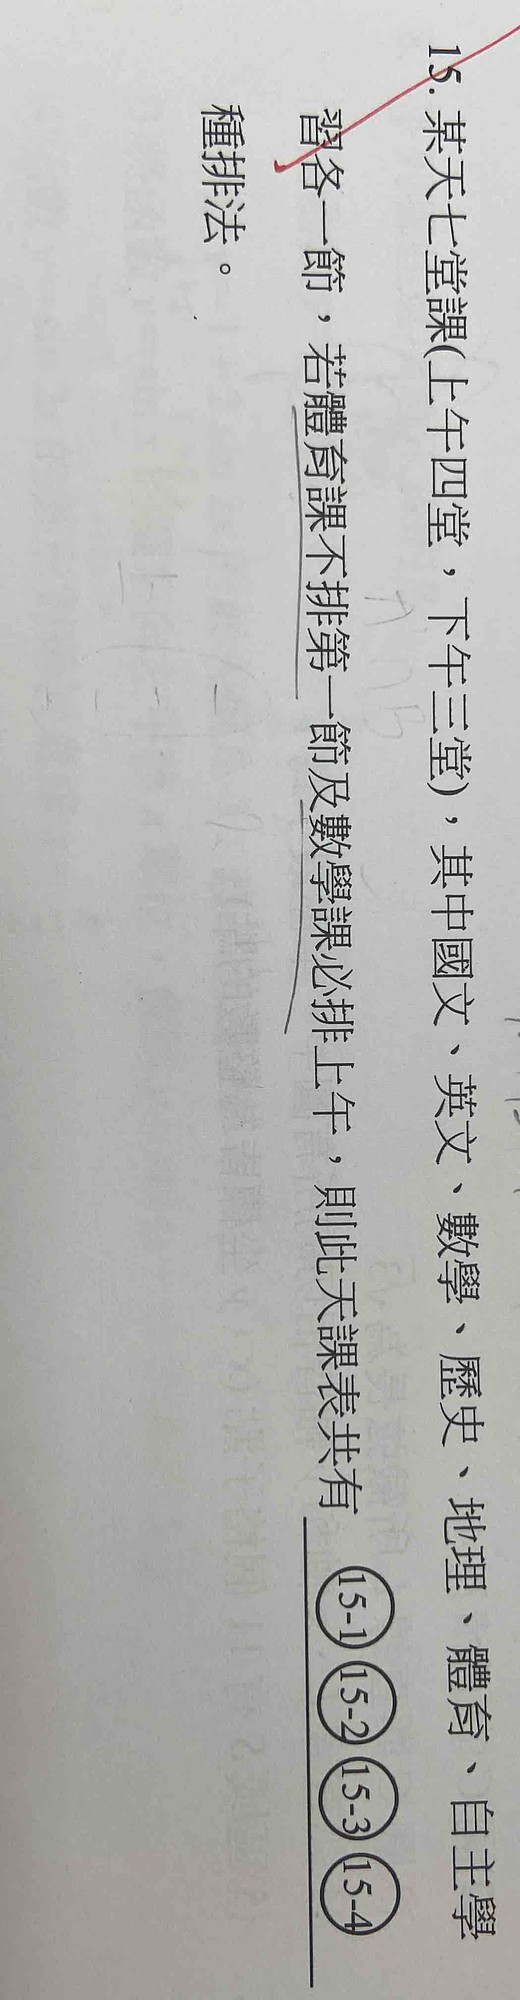 15. 某天七堂課(上午四堂，下午三堂)，其中國文、英文、數學、歷史、地理、體育、自主學
習各一節，若體育課不排第一節及數學課必排上午，則此天課表共有 15-1 15-2 15-3 15-4
種排法。